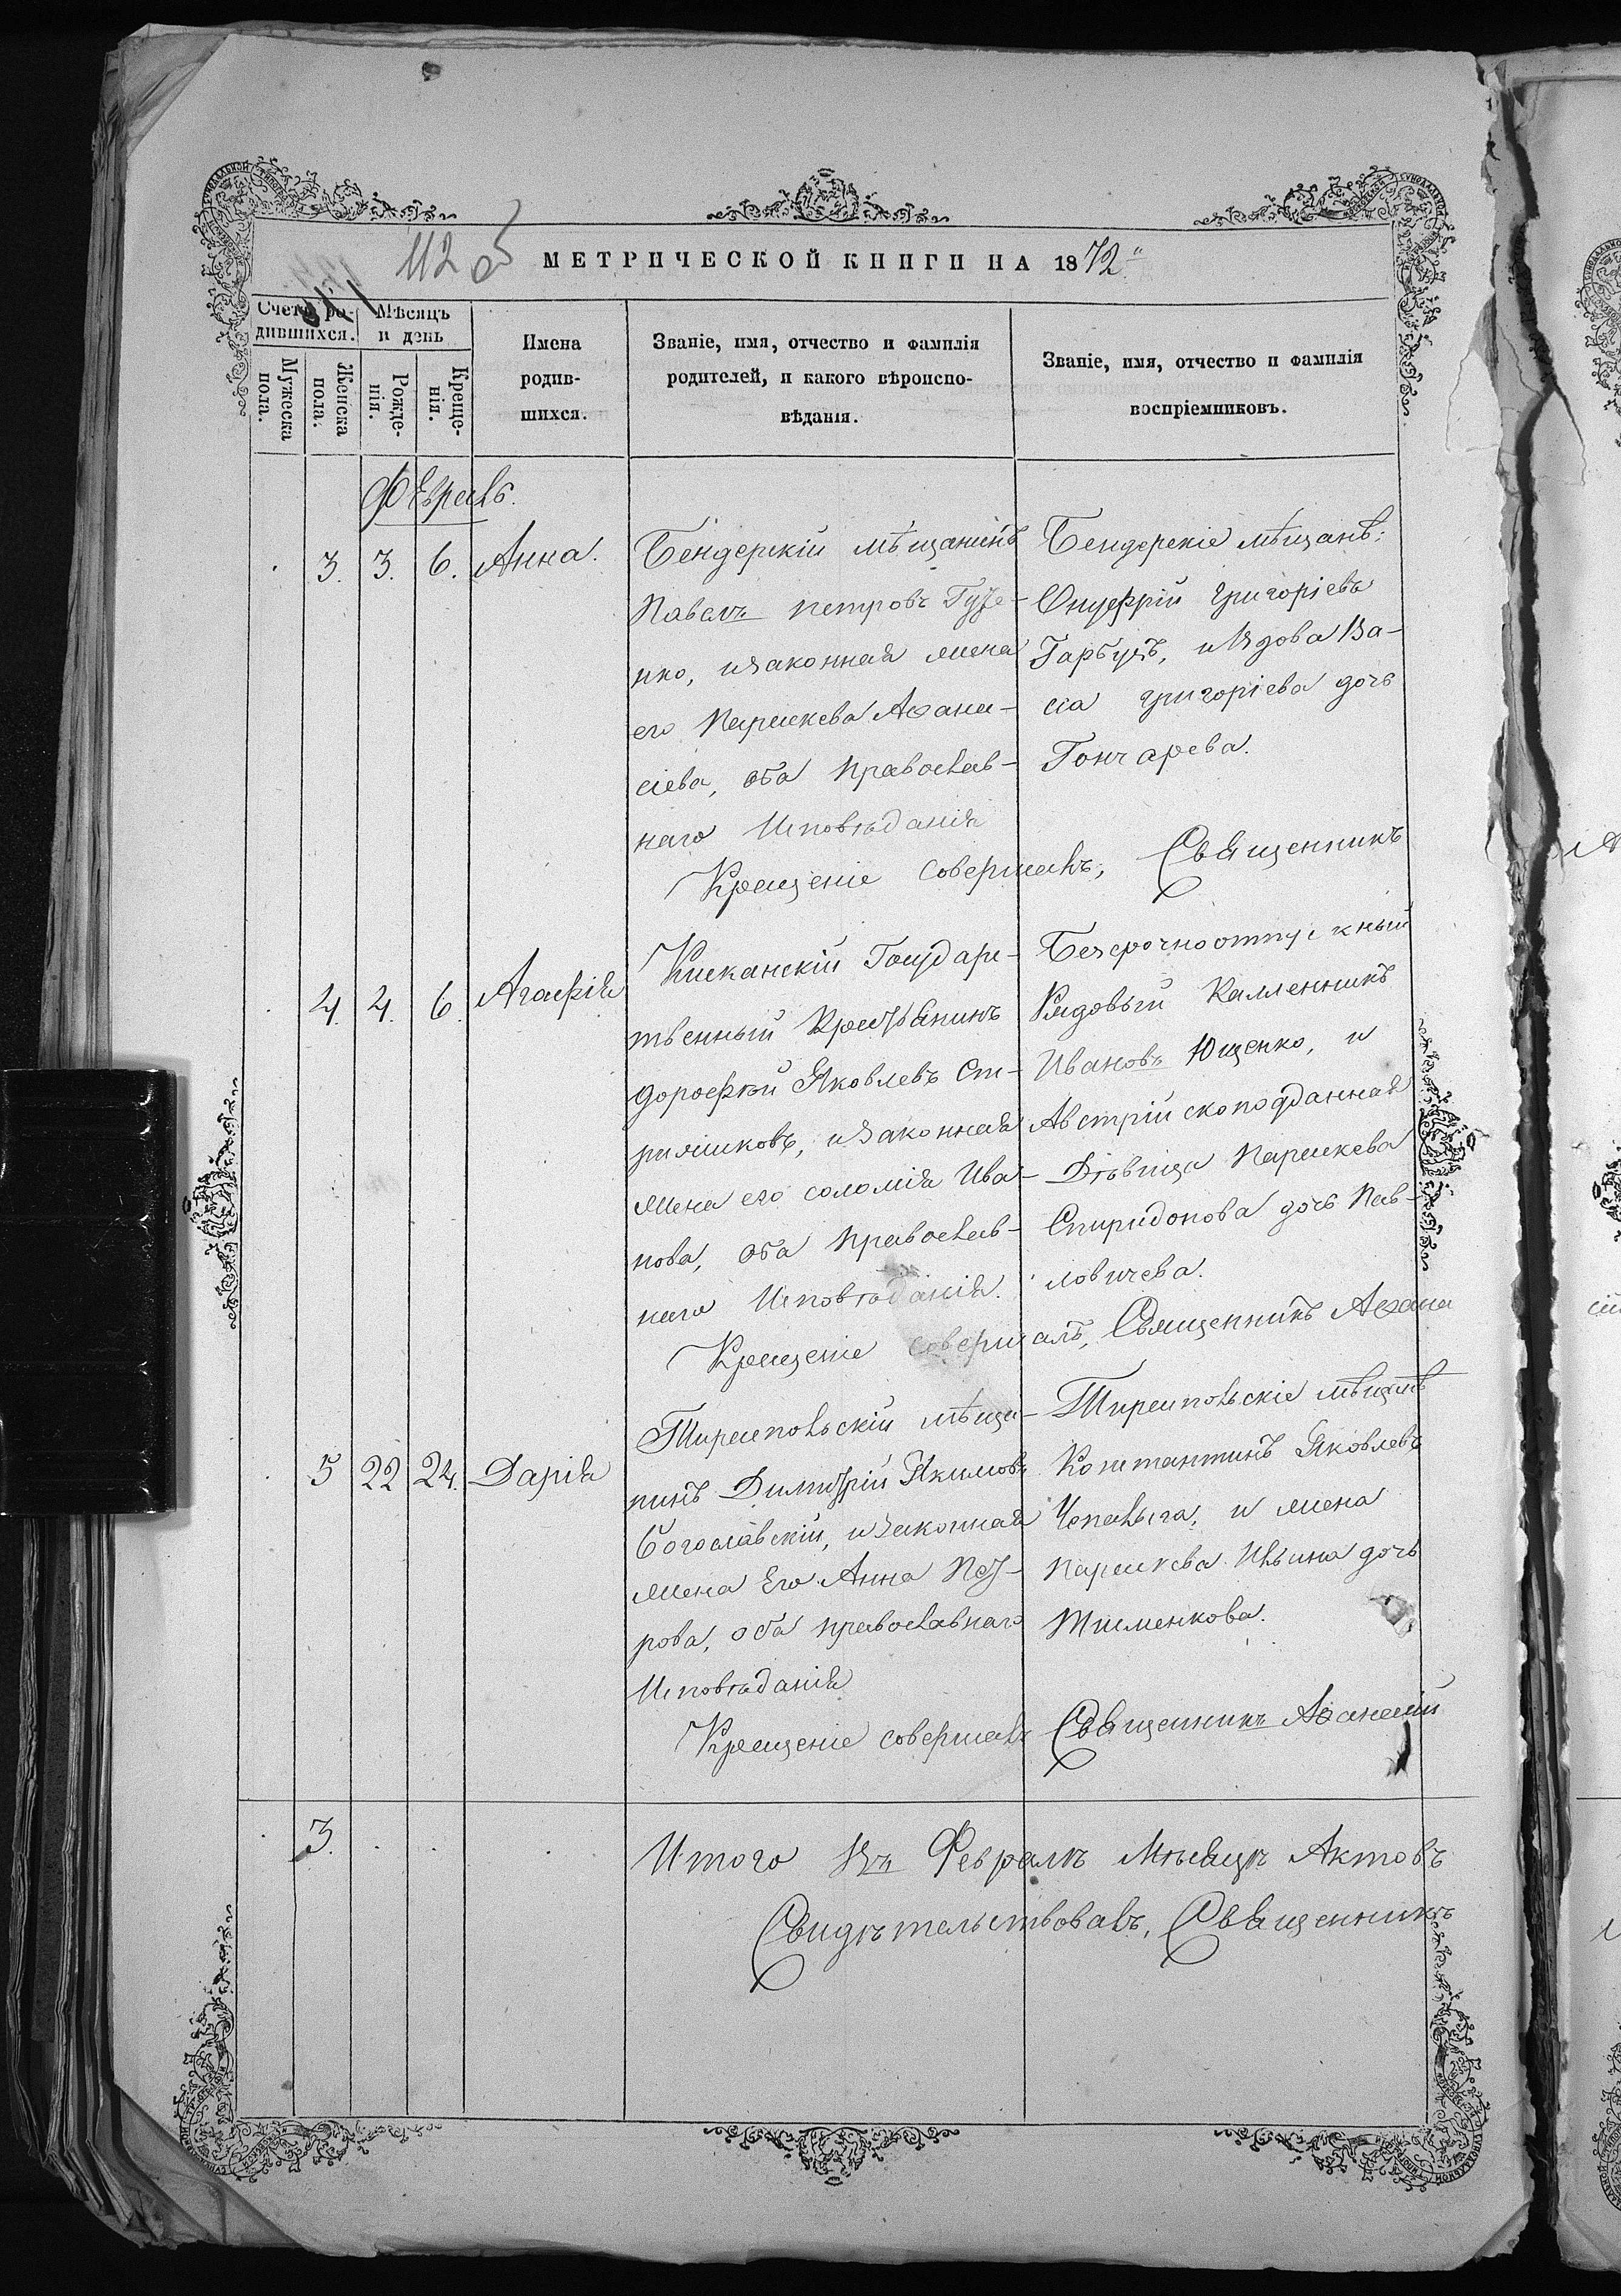 112 об
МЕТРИЧЕСКОЙ КНИГИ НА 1872
Счетъ ро-
дившихся.
Мѣсяцъ
и день
Мужеска
пола.
Женска
пола.
Рожде-
нія.
Креще-
нія.
Имена
родив-
шихся.
Званіе, имя, отчество и фамилія
родителей, и какого вѣроиспо-
вѣданія.
Званіе, имя, отчество и фамилія
воспріемниковъ.
Февраль.
3. 3. 6. Анна.
Бендерскій мѣщанинъ
Павелъ Петровъ Гузе-
нко, и законная жена
его Параскева Аѳана-
сіева, оба Православ-
наго Исповѣданія
Бендерскіе мѣщанѣ:
Онуфрій Григоріевъ
Гарбузъ, и Вдова Ва-
са Григоріева дочь
Гончарева.
Крещеніе совершалъ, Священникъ
4. 4. 6. Агафія
Кисканскій Государс-
твенный Крестьянинъ
Дорофей Яковлевъ Ст-
ряшковъ, и законная
жена его Соломія Ива-
нова, оба Православ-
наго Исповѣданія.
Безсрочноотпускный
Рядовый Каленникъ
Ивановъ Ющенко, и
Австрійскоподданная
Дѣвица Параскева
Спиридонова дочь Пав-
ловичева.
Крещеніе совершалъ, Священникъ Аѳана
5 22 24. Дарія
Тираспольскій мѣща-
нинъ Димитрій Якимовъ
Богославскій, и законная
жена Его Анна Пет-
рова, оба православнаго
Исповѣданія
Тираспольскіе мѣщанѣ
Константинъ Яковлевъ
Чепалыга, и жена
Параскева Ильина дочь
Тименкова.
Крещеніе совершалъ Священникъ Аѳанасій
3. Итого въ Февралѣ Мѣсяцѣ Актовъ
Свидѣтельствовалъ, Священникъ